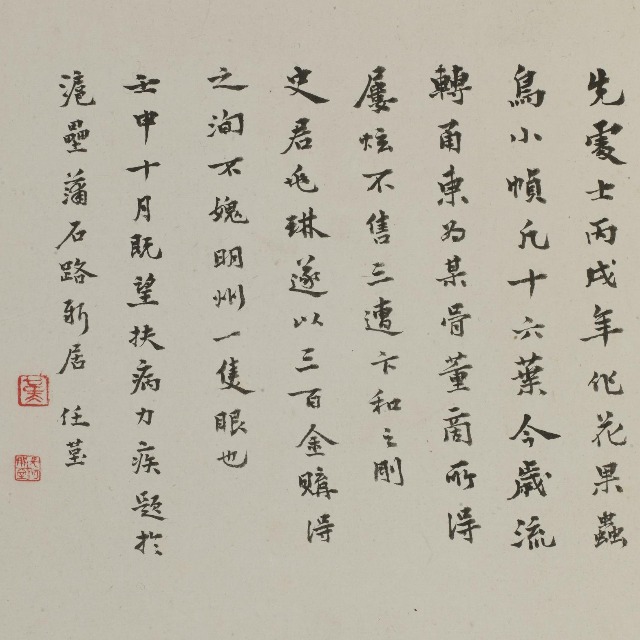 先處士丙戌年作花果蟲
鳥小幀凡十六葉今歲流
轉甬東為某骨董商所得
屢炫不售三遭卞和之刖
史君兆琳遂以三百金購得
之洵不媿明州一隻眼也
壬申十月既望扶病力疾題於
滬壘蒲石路新居 任堇